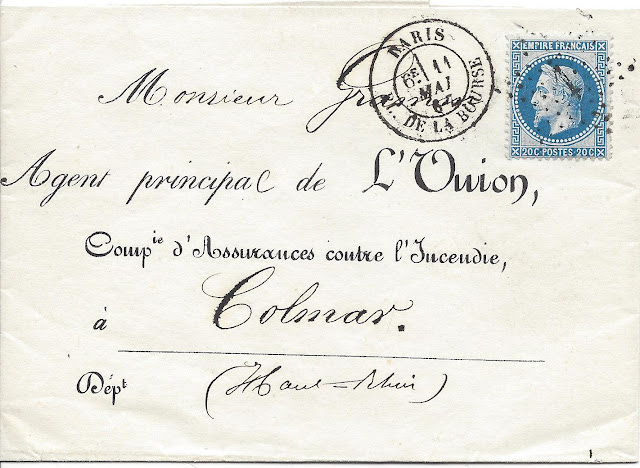 PARIS
PL. DE LA BOURSE
11
MAI
EMPIRE FRANÇAIS
20C POSTES 20C
Monsieur
Agent principal de L'Union,
Comp^ie d'Assurances contre l'Incendie,
à Colmar.
Dép^t (Haut-Rhin)